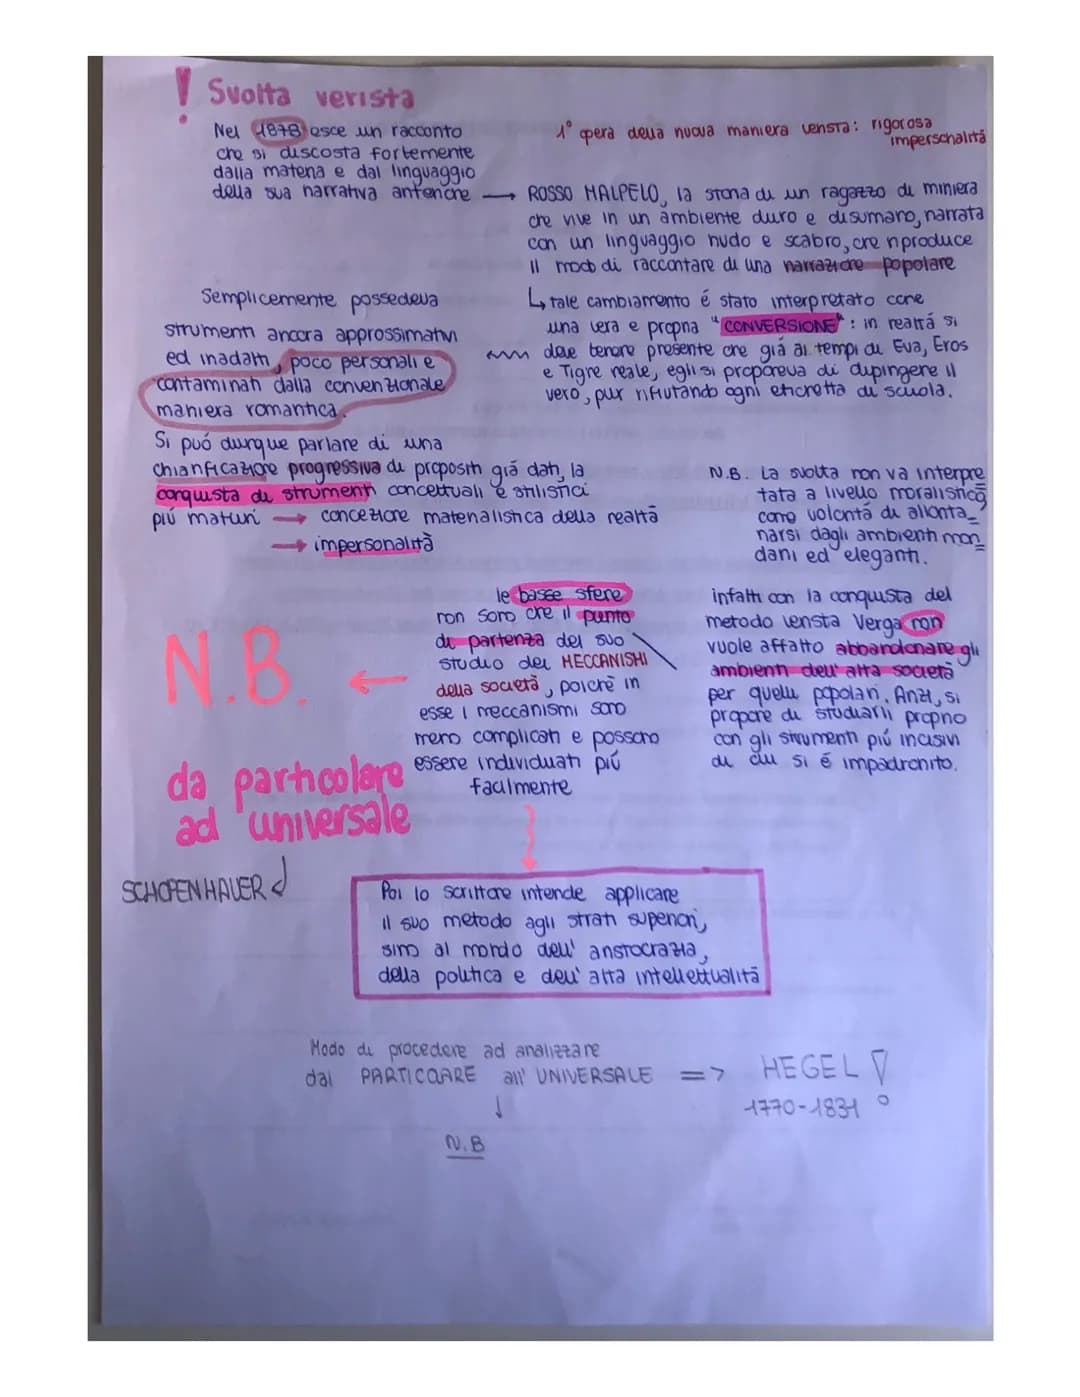 ! Svolta verista
Nel 1878 esce un racconto
che si discosta fortemente
dalla materia e dal linguaggio
della sua narrativa anteriore →
1° opera della nuova maniera verista: rigorosa
impersonalità
ROSSO MALPELO, la storia di un ragazzo di miniera
che vive in un ambiente duro e disumano, narrata
con un linguaggio nudo e scabro, che riproduce
il modo di raccontare di una narrazione popolare
↳ tale cambiamento é stato interpretato come
una vera e propria "CONVERSIONE": in realtá si
deve tenere presente che giá ai tempi di Eva, Eros
e Tigre reale, egli si proponeva di dipingere il
vero, pur rifiutando ogni etichetta di scuola.
Semplicemente possedeva
strumenti ancora approssimativi
ed inadatti, poco personali e
contaminati dalla convenzionale
maniera romantica.
Si puó dunque parlare di una
chiarificazione progressiva di propositi giá dati, la
conquista di strumenti concettuali e stilistici
piú maturi → concezione materialistica della realtà
→ impersonalità
N.B. La svolta non va interpre
tata a livello moralistico,
come volontá di allonta_
narsi dagli ambienti mon_
dani ed eleganti.
infatti con la conquista del
metodo verista Verga non
vuole affatto abbandonare gli
ambienti dell'alta societá
per quelli popolari. Anzi, si
propone di studiarli proprio
con gli strumenti piú incisivi
di cui si é impadronito.
le basse sfere
non sono che il punto
di partenza del suo
studio dei MECCANISMI
della società, poichè in
esse i meccanismi sono
meno complicati e possono
essere individuati piú
facilmente
N.B. ←
da particolare
ad universale
SCHOPENHAUER
Poi lo scrittore intende applicare
il suo metodo agli strati superiori,
sino al mondo dell'aristocrazia,
della politica e dell'alta intellettualità
Modo di procedere ad analizzare
dal PARTICOARE all'UNIVERSALE => HEGEL !
1770-1831
↓
N.B